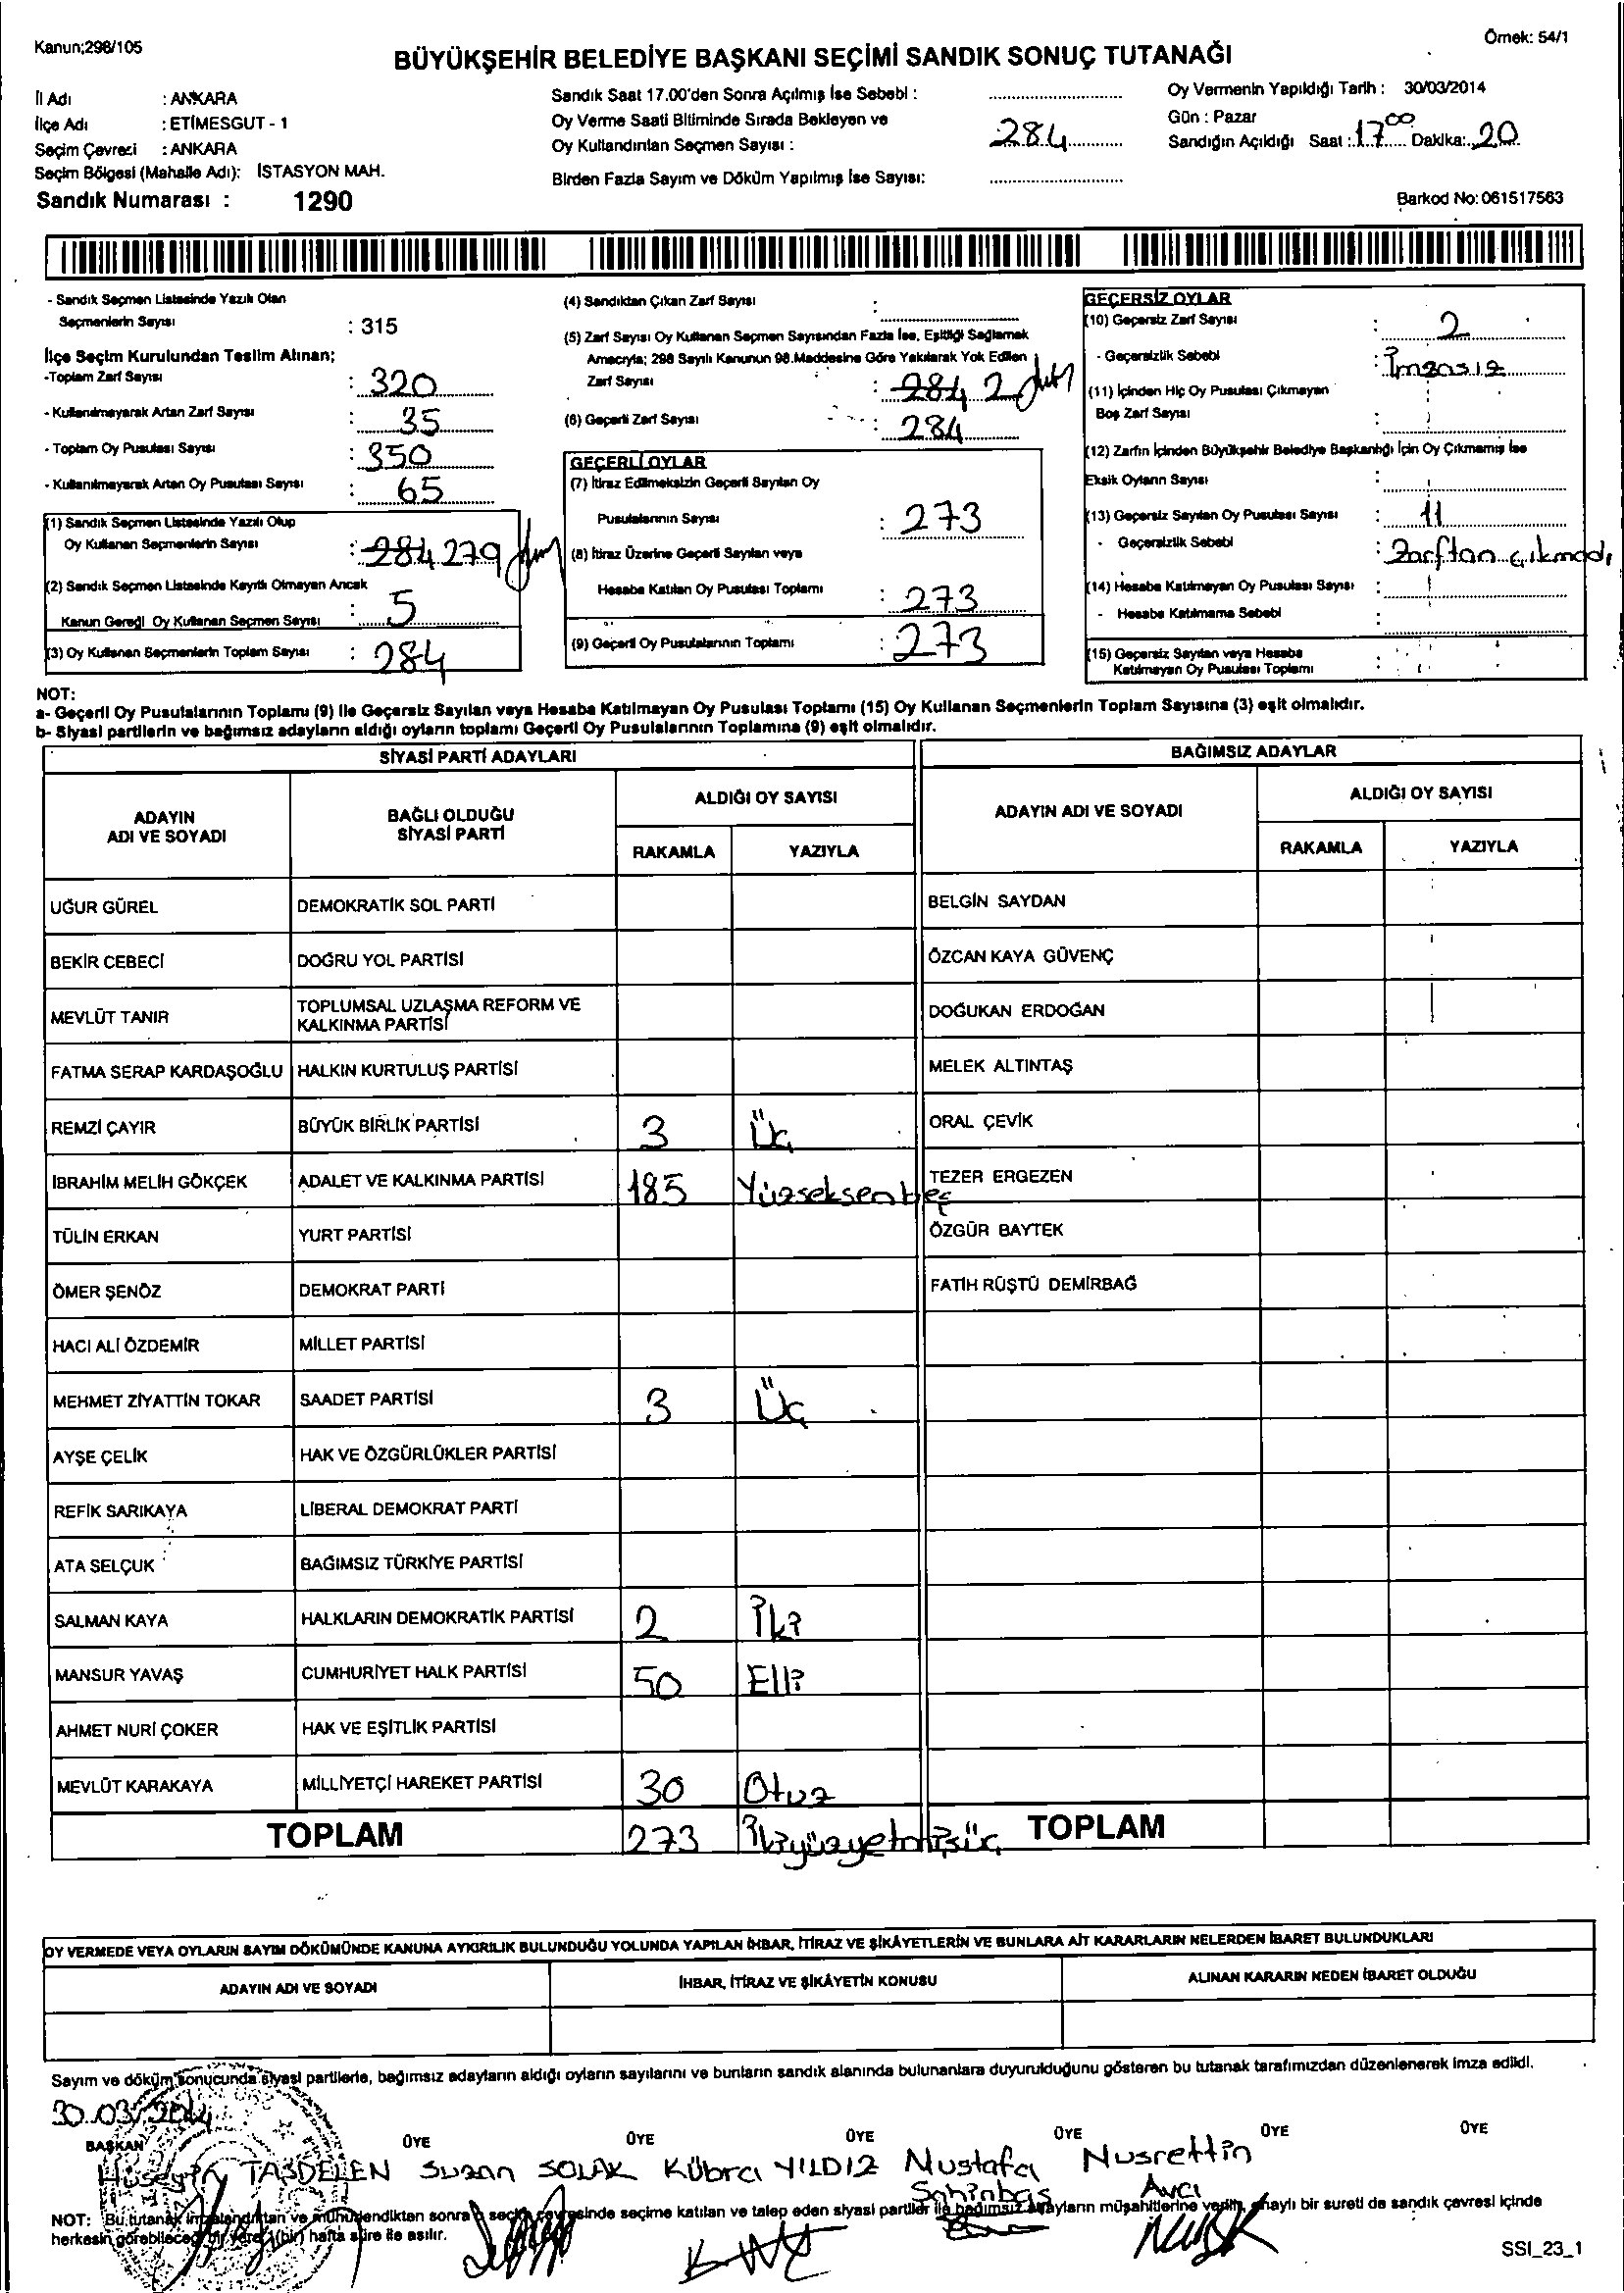 Kanun;298/105
Örnek: 54/1
BÜYÜKŞEHİR BELEDİYE BAŞKANI SEÇİMİ SANDIK SONUÇ TUTANAĞI
İl Adı : ANKARA
İlçe Adı : ETİMESGUT - 1
Seçim Çevresi : ANKARA
Seçim Bölgesi (Mahalle Adı): İSTASYON MAH.
Sandık Numarası : 1290
Sandık Saat 17.00'den Sonra Açılmış İse Sebebi :
Oy Verme Saati Bitiminde Sırada Bekleyen ve
Oy Kullandırılan Seçmen Sayısı : 284
Birden Fazla Sayım ve Döküm Yapılmış İse Sayısı:
Oy Vermenin Yapıldığı Tarih : 30/03/2014
Gün : Pazar
Sandığın Açıldığı Saat : 17 00 Dakika: 20
Barkod No: 061517563
- Sandık Seçmen Listesinde Yazılı Olan
Seçmenlerin Sayısı : 315
İlçe Seçim Kurulundan Teslim Alınan;
-Toplam Zarf Sayısı : 320
- Kullanılmayarak Artan Zarf Sayısı : 35
- Toplam Oy Pusulası Sayısı : 350
- Kullanılmayarak Artan Oy Pusulası Sayısı : 65
(1) Sandık Seçmen Listesinde Yazılı Olup
Oy Kullanan Seçmenlerin Sayısı : 284 279
(2) Sandık Seçmen Listesinde Kayıtlı Olmayan Ancak
Kanun Gereği Oy Kullanan Seçmen Sayısı : 5
(3) Oy Kullanan Seçmenlerin Toplam Sayısı : 284
(4) Sandıktan Çıkan Zarf Sayısı :
(5) Zarf Sayısı Oy Kullanan Seçmen Sayısından Fazla İse, Eşitliği Sağlamak
Amacıyla; 298 Sayılı Kanunun 98.Maddesine Göre Yakılarak Yok Edilen
Zarf Sayısı : 284 2
(6) Geçerli Zarf Sayısı : 284
GEÇERLİ OYLAR
(7) İtiraz Edilmeksizin Geçerli Sayılan Oy
Pusulalarının Sayısı : 273
(8) İtiraz Üzerine Geçerli Sayılan veya
Hesaba Katılan Oy Pusulası Toplamı : 273
(9) Geçerli Oy Pusulalarının Toplamı : 273
GEÇERSİZ OYLAR
(10) Geçersiz Zarf Sayısı : 2
- Geçersizlik Sebebi : İmzasız
(11) İçinden Hiç Oy Pusulası Çıkmayan
Boş Zarf Sayısı :
(12) Zarfın İçinden Büyükşehir Belediye Başkanlığı İçin Oy Çıkmamış İse
Eksik Oyların Sayısı :
(13) Geçersiz Sayılan Oy Pusulası Sayısı : 11
- Geçersizlik Sebebi : Zarftan çıkmadı
(14) Hesaba Katılmayan Oy Pusulası Sayısı :
- Hesaba Katılmama Sebebi :
(15) Geçersiz Sayılan veya Hesaba
Katılmayan Oy Pusulası Toplamı :
NOT:
a- Geçerli Oy Pusulalarının Toplamı (9) İle Geçersiz Sayılan veya Hesaba Katılmayan Oy Pusulası Toplamı (15) Oy Kullanan Seçmenlerin Toplam Sayısına (3) eşit olmalıdır.
b- Siyasi partilerin ve bağımsız adayların aldığı oyların toplamı Geçerli Oy Pusulalarının Toplamına (9) eşit olmalıdır.
SİYASİ PARTİ ADAYLARI
BAĞIMSIZ ADAYLAR
ADAYIN
ADI VE SOYADI
BAĞLI OLDUĞU
SİYASİ PARTİ
ALDIĞI OY SAYISI
RAKAMLA YAZIYLA
ADAYIN ADI VE SOYADI
ALDIĞI OY SAYISI
RAKAMLA YAZIYLA
UĞUR GÜREL DEMOKRATİK SOL PARTİ BELGİN SAYDAN
BEKİR CEBECİ DOĞRU YOL PARTİSİ ÖZCAN KAYA GÜVENÇ
MEVLÜT TANIR TOPLUMSAL UZLAŞMA REFORM VE
KALKINMA PARTİSİ DOĞUKAN ERDOĞAN
FATMA SERAP KARDAŞOĞLU HALKIN KURTULUŞ PARTİSİ MELEK ALTINTAŞ
REMZİ ÇAYIR BÜYÜK BİRLİK PARTİSİ 3 Üç ORAL ÇEVİK
İBRAHİM MELİH GÖKÇEK ADALET VE KALKINMA PARTİSİ 185 Yüzseksenbeş TEZER ERGEZEN
TÜLİN ERKAN YURT PARTİSİ ÖZGÜR BAYTEK
ÖMER ŞENÖZ DEMOKRAT PARTİ FATİH RÜŞTÜ DEMİRBAĞ
HACI ALİ ÖZDEMİR MİLLET PARTİSİ
MEHMET ZİYATTİN TOKAR SAADET PARTİSİ 3 Üç
AYŞE ÇELİK HAK VE ÖZGÜRLÜKLER PARTİSİ
REFİK SARIKAYA LİBERAL DEMOKRAT PARTİ
ATA SELÇUK BAĞIMSIZ TÜRKİYE PARTİSİ
SALMAN KAYA HALKLARIN DEMOKRATİK PARTİSİ 2 İki
MANSUR YAVAŞ CUMHURİYET HALK PARTİSİ 50 Elli
AHMET NURİ ÇOKER HAK VE EŞİTLİK PARTİSİ
MEVLÜT KARAKAYA MİLLİYETÇİ HAREKET PARTİSİ 30 Otuz
TOPLAM 273 İkiyüzyetmişüç TOPLAM
OY VERMEDE VEYA OYLARIN SAYIM DÖKÜMÜNDE KANUNA AYKIRILIK BULUNDUĞU YOLUNDA YAPILAN İHBAR, İTİRAZ VE ŞİKÂYETLERİN VE BUNLARA AİT KARARLARIN NELERDEN İBARET BULUNDUKLARI
ADAYIN ADI VE SOYADI İHBAR, İTİRAZ VE ŞİKÂYETİN KONUSU ALINAN KARARIN NEDEN İBARET OLDUĞU
Sayım ve döküm sonucunda siyasi partilerle, bağımsız adayların aldığı oyların sayılarını ve bunların sandık alanında bulunanlara duyurulduğunu gösteren bu tutanak tarafımızdan düzenlenerek imza edildi.
30.03.2014
BAŞKAN ÜYE ÜYE ÜYE ÜYE ÜYE ÜYE
Hüseyin TAŞDELEN Suzan SOLAK Kübra YILDIZ Mustafa Şahinbaş Nusrettin Avcı
NOT: Bu tutanak imzalandıktan ve mühürlendikten sonra seçim çevresinde seçime katılan ve talep eden siyasi partiler ile bağımsız adayların müşahitlerine verilir, onaylı bir sureti de sandık çevresi içinde
herkesin görebileceği bir yere 1(bir) hafta süre ile asılır.
SSI_23_1